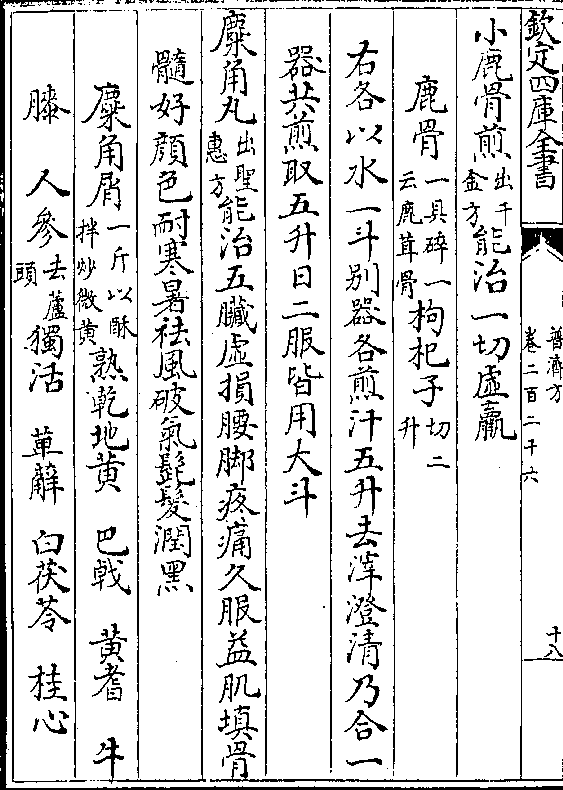 欽定四庫全書
普濟方
卷二百二十六
十八
小鹿骨煎出千金方能治一切虛羸
鹿骨一具碎一云鹿茸骨枸杞子切二升
右各以水一斗别器各煎汁五升去滓澄清乃合一
器共煎取五升日二服皆用大斗
麋角丸出聖惠方能治五臟虛損腰脚疼痛久服益肌填骨
髓好顔色耐寒暑祛風破氣髭髪潤黑
麋角屑一斤以酥拌炒微黄熟乾地黄 巴戟 黄耆 牛
膝 人參去蘆頭獨活 萆薢 白茯苓 桂心